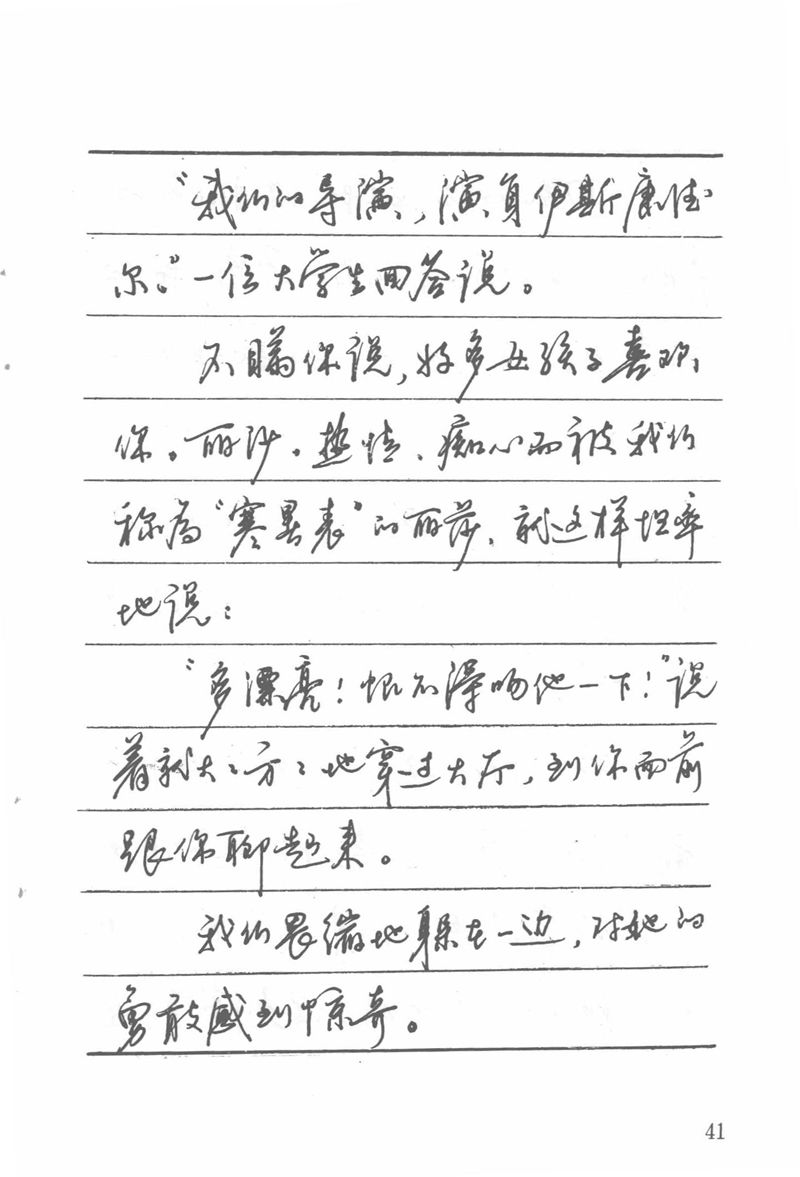 “我们的导演，演员伊斯康德
尔。”一位大学生回答说。
不瞒你说，好多女孩子喜欢
你。丽莎。热情、痴心而被我们
称为“寒暑表”的丽莎，就这样坦率
地说：
“多漂亮！恨不得吻他一下！”说
着就大：方：地穿过大厅，到你面前
跟你聊起来。
我们畏缩地躲在一边，对她的
勇敢感到惊奇。
41